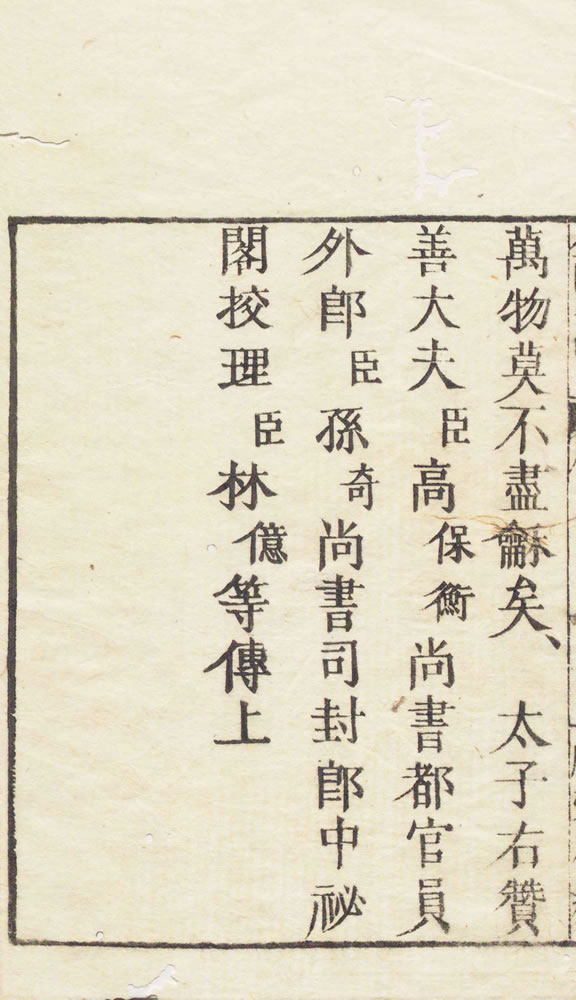 萬物莫不盡龢矣、　太子右贊
善大夫臣高保衡尚書都官員
外郎臣孫奇尚書司封郎中祕
閣挍理臣林億等傳上